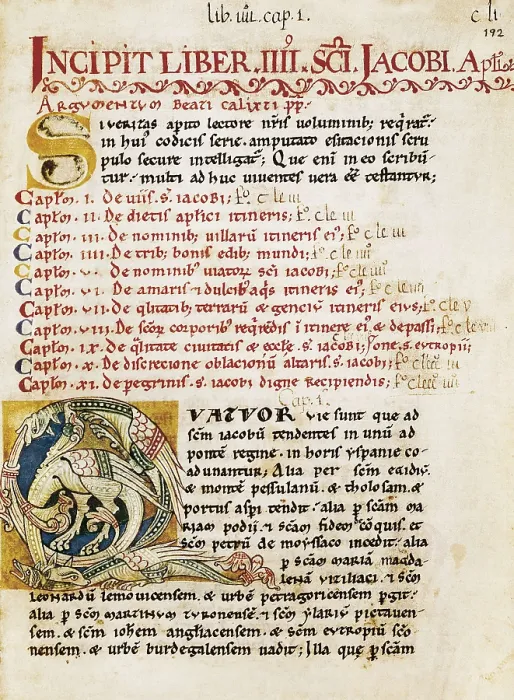 lib. iiii. cap. 1.
c li
192
INCIPIT LIBER .IIII. SCI. JACOBI. Apłi
Argumentum Beati calixti pp.
Si veritas apito lectore nris voluminib; reqrat.
in hui' codicis serie. amputato esitacionis scru
pulo secure intelligat; Que eni in eo scribu
tur. multi ad huc viventes vera ee testantur;
Capłm. i. De viis. s. iacobi; fo. c le iii
Capłm. ii. De dietis aplici itineris; fo. c le iii
Capłm. iii. De nominib; villaru itineris ei'; fo. c le iii
Capłm. iiii. De trib; bonis edib; mundi; fo. c le iiii
Capłm. v. De nominib' viator sci iacobi; fo. c le iiii
Capłm. vi. De amaris ⁊ dulcib' aqs itineris ei'; fo. c le
Capłm. vii. De qlitatib; terraru & genciu itineris eius; fo. c le v
Capłm. viii. De scor corporib' reqredis i itinere ei' & de passi; fo. c le
Capłm. ix. De qlitate civitatis & eccle. s. iacobi; s. eutropii;
Capłm. x. De discrecione oblacionu altaris. s. iacobi; fo
Capłm. xi. De pegrinis. s. iacobi digne recipiendis; fo
Cap. 1.
QUATUOR vie sunt que ad
scm iacobu tendentes in unu ad
ponte regine. in horis yspanie co-
adunantur; Alia per scm egidiu.
& monte pessulanu. & tholosam. &
portus aspi tendit. alia p scam ma
riam podii. ⁊ scam fidem de coquis. et
scm petru de moyssaco incedit. alia
p scam maria magda-
lena viziliaci. ⁊ scm
leonardu lemovicensem. & urbe petragoricensem pgit.
alia p scm martinum turonense. ⁊ scm ylariu pictaven-
sem. & scm iohem angliacensem. & scm eutropiu scto-
nensem. & urbe burdegalensem vadit; Illa que p scam